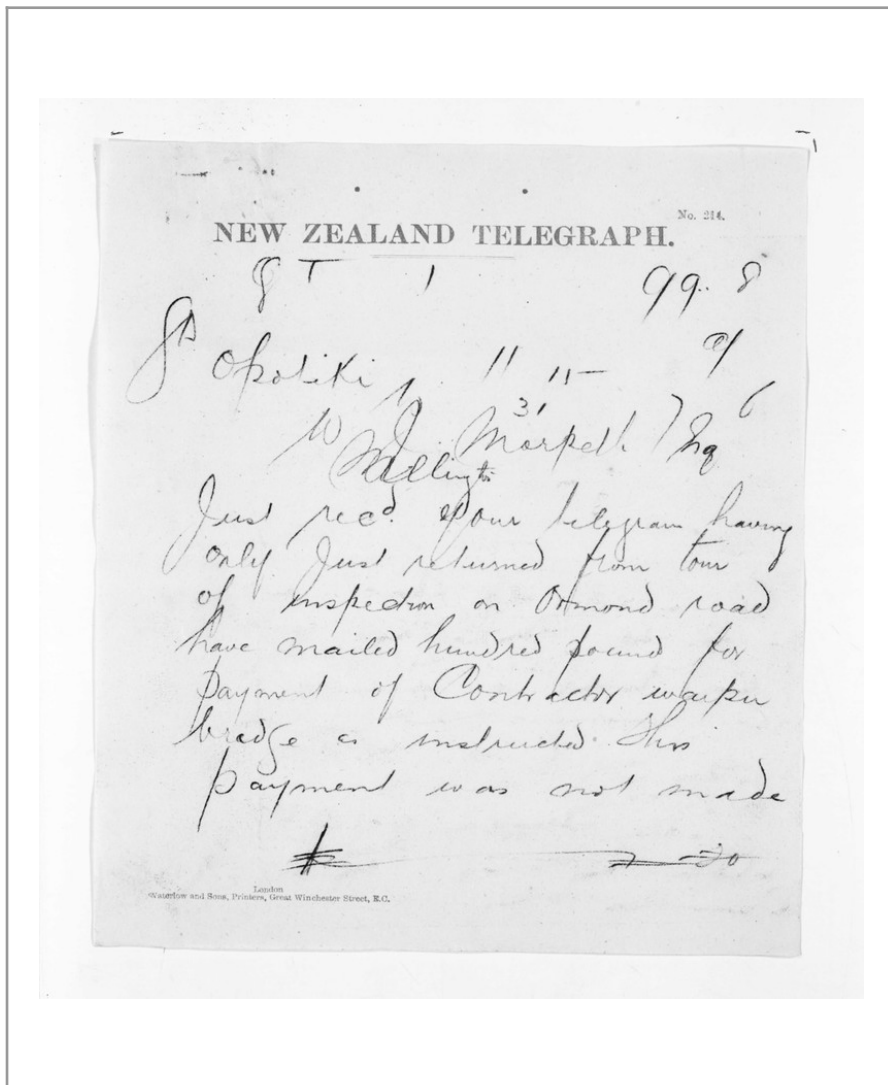 No. 214.
NEW ZEALAND TELEGRAPH.
8 T 1 99.. 8
Opotiki 11 15
31
W J Morpeth Esq
Wellington
Just recd. your telegram having
only Just returned from tour
of inspection on Ormond road
have mailed hundred pound for
payment of Contractor
bridge as instructed This
payment was not made
30
London
Waterlow and Sons, Printers, Great Winchester Street, E.C.